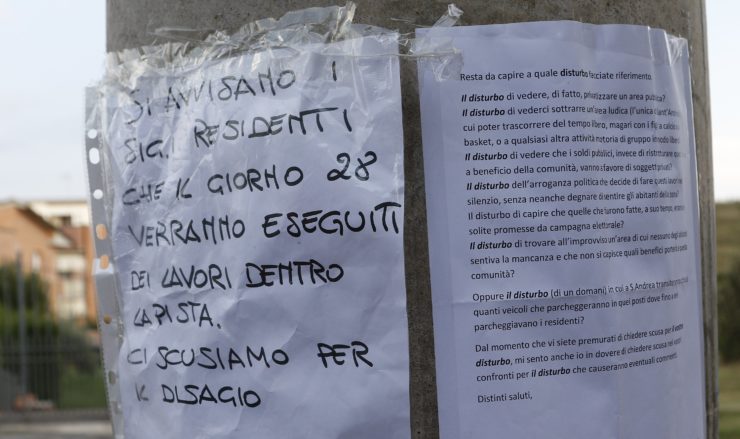 SI AVVISANO I
SIG.I RESIDENTI
CHE IL GIORNO 28
VERRANNO ESEGUITI
DEI LAVORI DENTRO
LA PISTA.
CI SCUSIAMO PER
IL DISAGIO
Resta da capire a quale disturbo facciate riferimento.
Il disturbo di vedere, di fatto, privatizzare un area pubblica?
Il disturbo di vederci sottrarre un'area ludica (l'unica di Sant'Andr
cui poter trascorrere del tempo libero, magari con i figli a calcio
basket, o a qualsiasi altra attività motoria di gruppo in modo libero
Il disturbo di vedere che i soldi pubblici, invece di ristrutturare
a beneficio della comunità, vanno a favore di soggetti privati?
Il disturbo dell'arroganza politica che decide di fare questi lavori nel
silenzio, senza neanche degnare di sentire gli abitanti della zona?
Il disturbo di capire che quelle che furono fatte, a suo tempo, erano
solite promesse da campagna elettorale?
Il disturbo di trovare all'improvviso un'area di cui nessuno degli abitanti
sentiva la mancanza e che non si capisce quali benefici porterà a
comunità?
Oppure il disturbo (di un domani) in cui a S.Andrea transiteranno
quanti veicoli che parcheggeranno in quei posti dove fino a
parcheggiavano i residenti?
Dal momento che vi siete premurati di chiedere scusa per il vostro
disturbo, mi sento anche io in dovere di chiedere scusa nei vostri
confronti per il disturbo che causeranno eventuali commenti.
Distinti saluti,